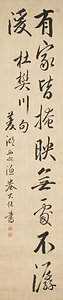 有家皆掩映無處不潺
湲 杜樊川句
菱湖